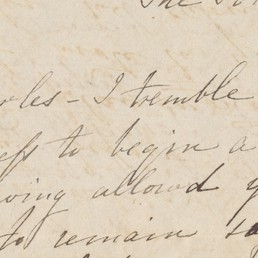 The
rles - I tremble
to begin a
ving allowed y
to remain so